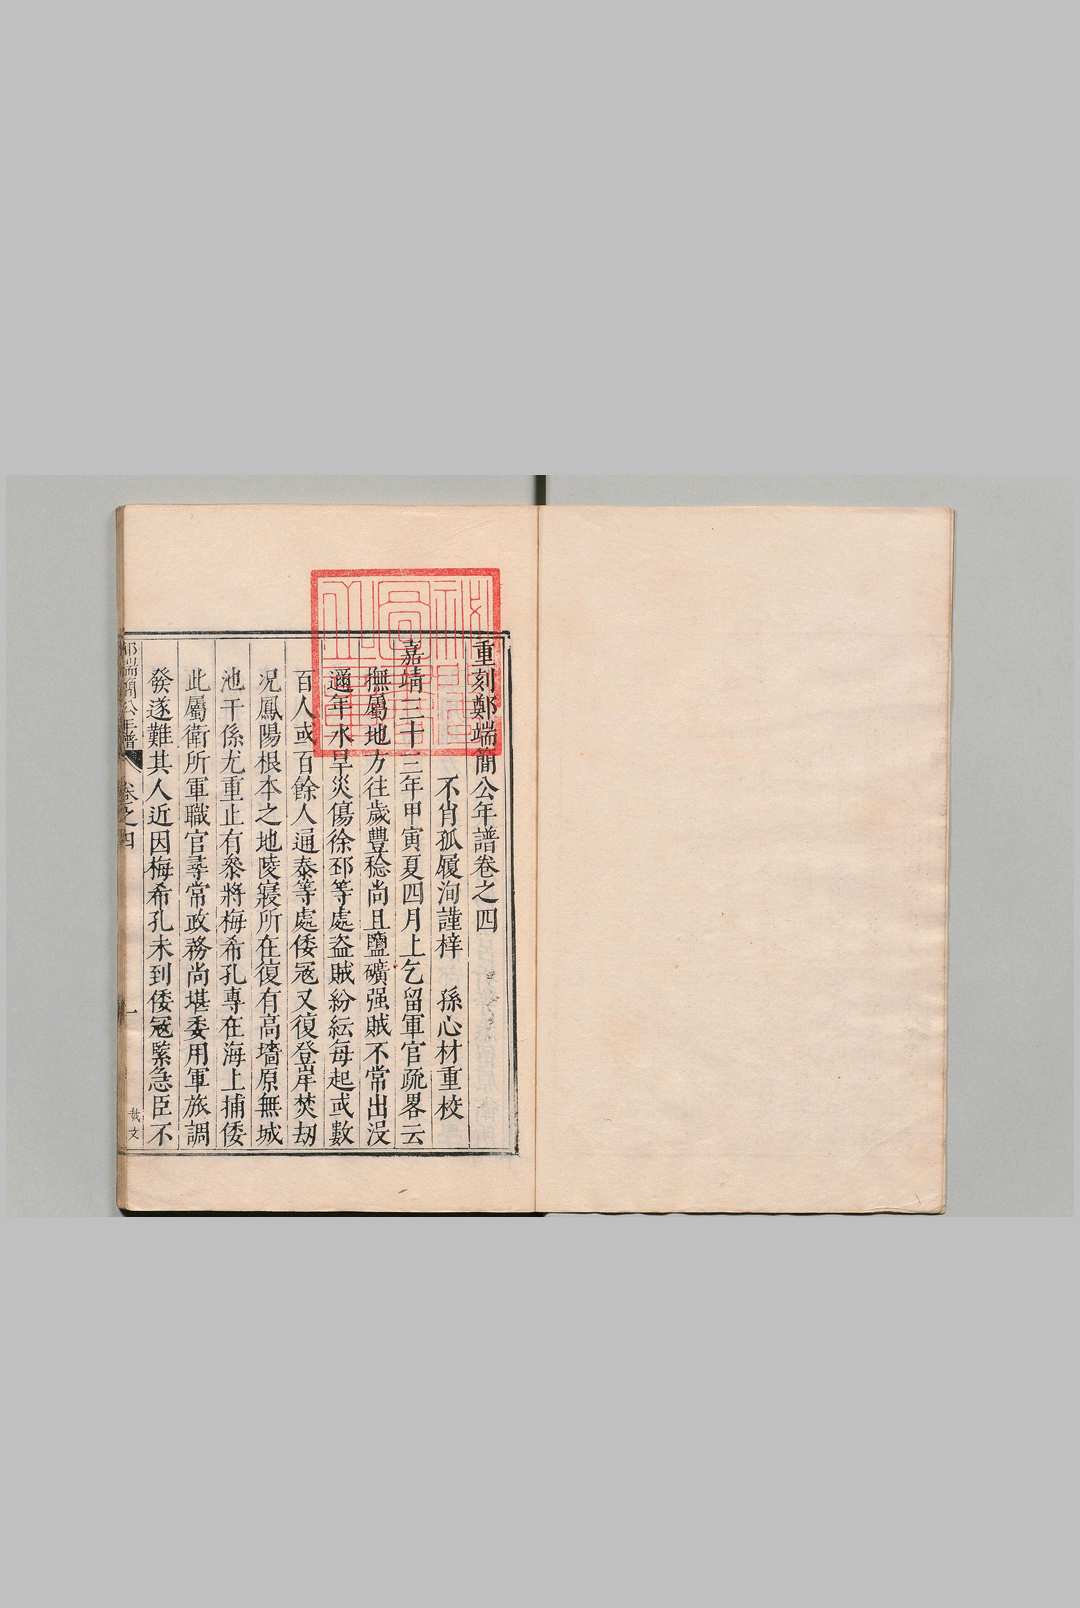 重刻鄭端簡公年譜卷之四
不肖孤履洵謹梓　孫心材重校
嘉靖三十三年甲寅夏四月上乞留軍官疏畧云
撫屬地方往歲豐稔尚且鹽礦强賊不常出没
邇年水旱災傷徐邳等處盗賊紛紜每起或數
百人或百餘人通泰等處倭冦又復登岸焚刼
况鳳陽根本之地陵寢所在復有高墻原無城
池干係尤重止有叅將梅希孔專在海上捕倭
此屬衛所軍職官尋常政務尚堪委用軍旅調
發遂難其人近因梅希孔未到倭冦緊急臣不
鄭端簡公年譜　卷之四　一　哉文